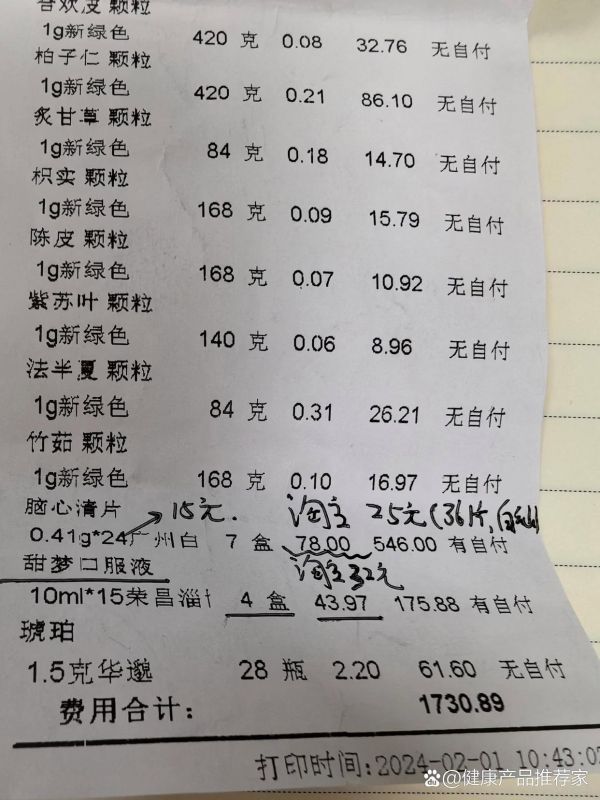 合欢皮 颗粒
1g新绿色 420 克 0.08 32.76 无自付
柏子仁 颗粒
1g新绿色 420 克 0.21 86.10 无自付
炙甘草 颗粒
1g新绿色 84 克 0.18 14.70 无自付
枳实 颗粒
1g新绿色 168 克 0.09 15.79 无自付
陈皮 颗粒
1g新绿色 168 克 0.07 10.92 无自付
紫苏叶 颗粒
1g新绿色 140 克 0.06 8.96 无自付
法半夏 颗粒
1g新绿色 84 克 0.31 26.21 无自付
竹茹 颗粒
1g新绿色 168 克 0.10 16.97 无自付
脑心清片 15元. 淘宝 25元(36片,白云山)
0.41g*24广州白 7 盒 78.00 546.00 有自付
甜梦口服液 淘宝32元
10ml*15荣昌淄 4 盒 43.97 175.88 有自付
琥珀
1.5克华邈 28 瓶 2.20 61.60 无自付
费用合计: 1730.89
打印时间:2024-02-01 10:43:02
@健康产品推荐家